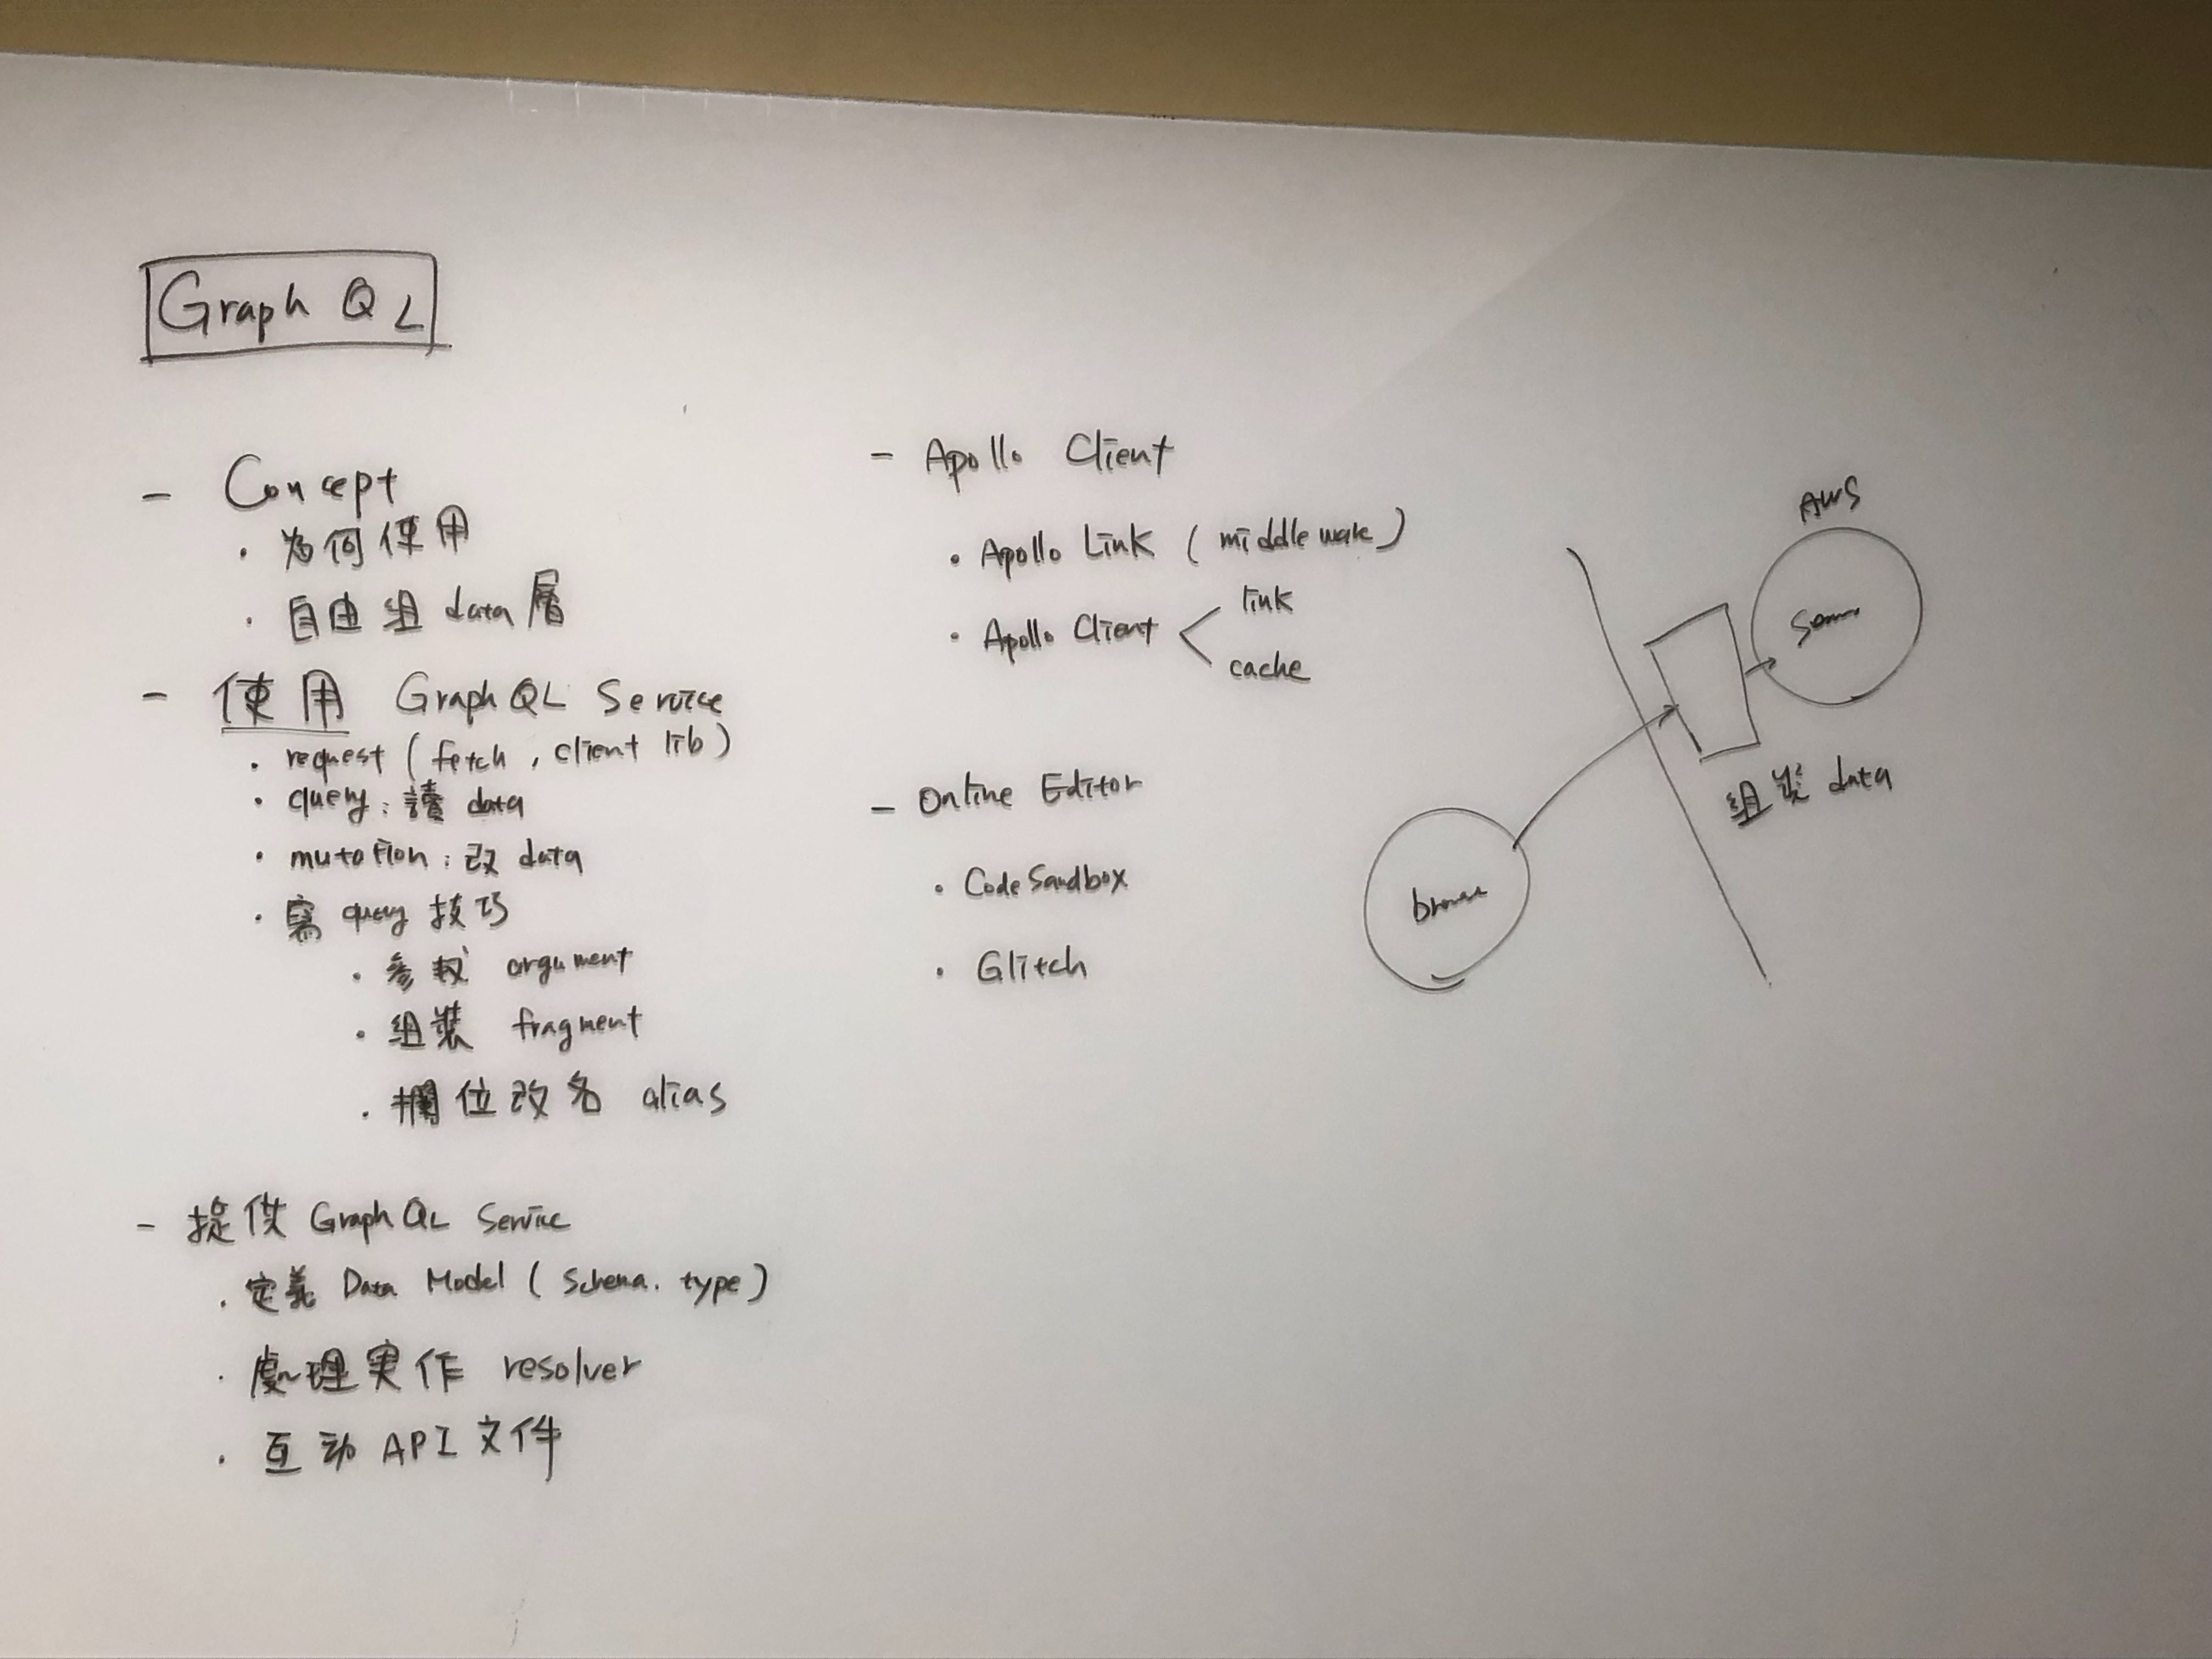 Graph QL
- Concept
· 為何使用
· 自由組 data 層
- 使用 GraphQL Service
· request (fetch, client lib)
· query: 讀 data
· mutation: 改 data
· 寫 query 技巧
· 參數 argument
· 組裝 fragment
· 欄位改名 alias
- 提供 GraphQL Service
· 定義 Data Model (Schema. type)
· 處理実作 resolver
· 互动 API 文件
- Apollo Client
· Apollo Link (middleware)
· Apollo Client < link
cache
- Online Editor
· CodeSandbox
· Glitch
AWS
組裝 data